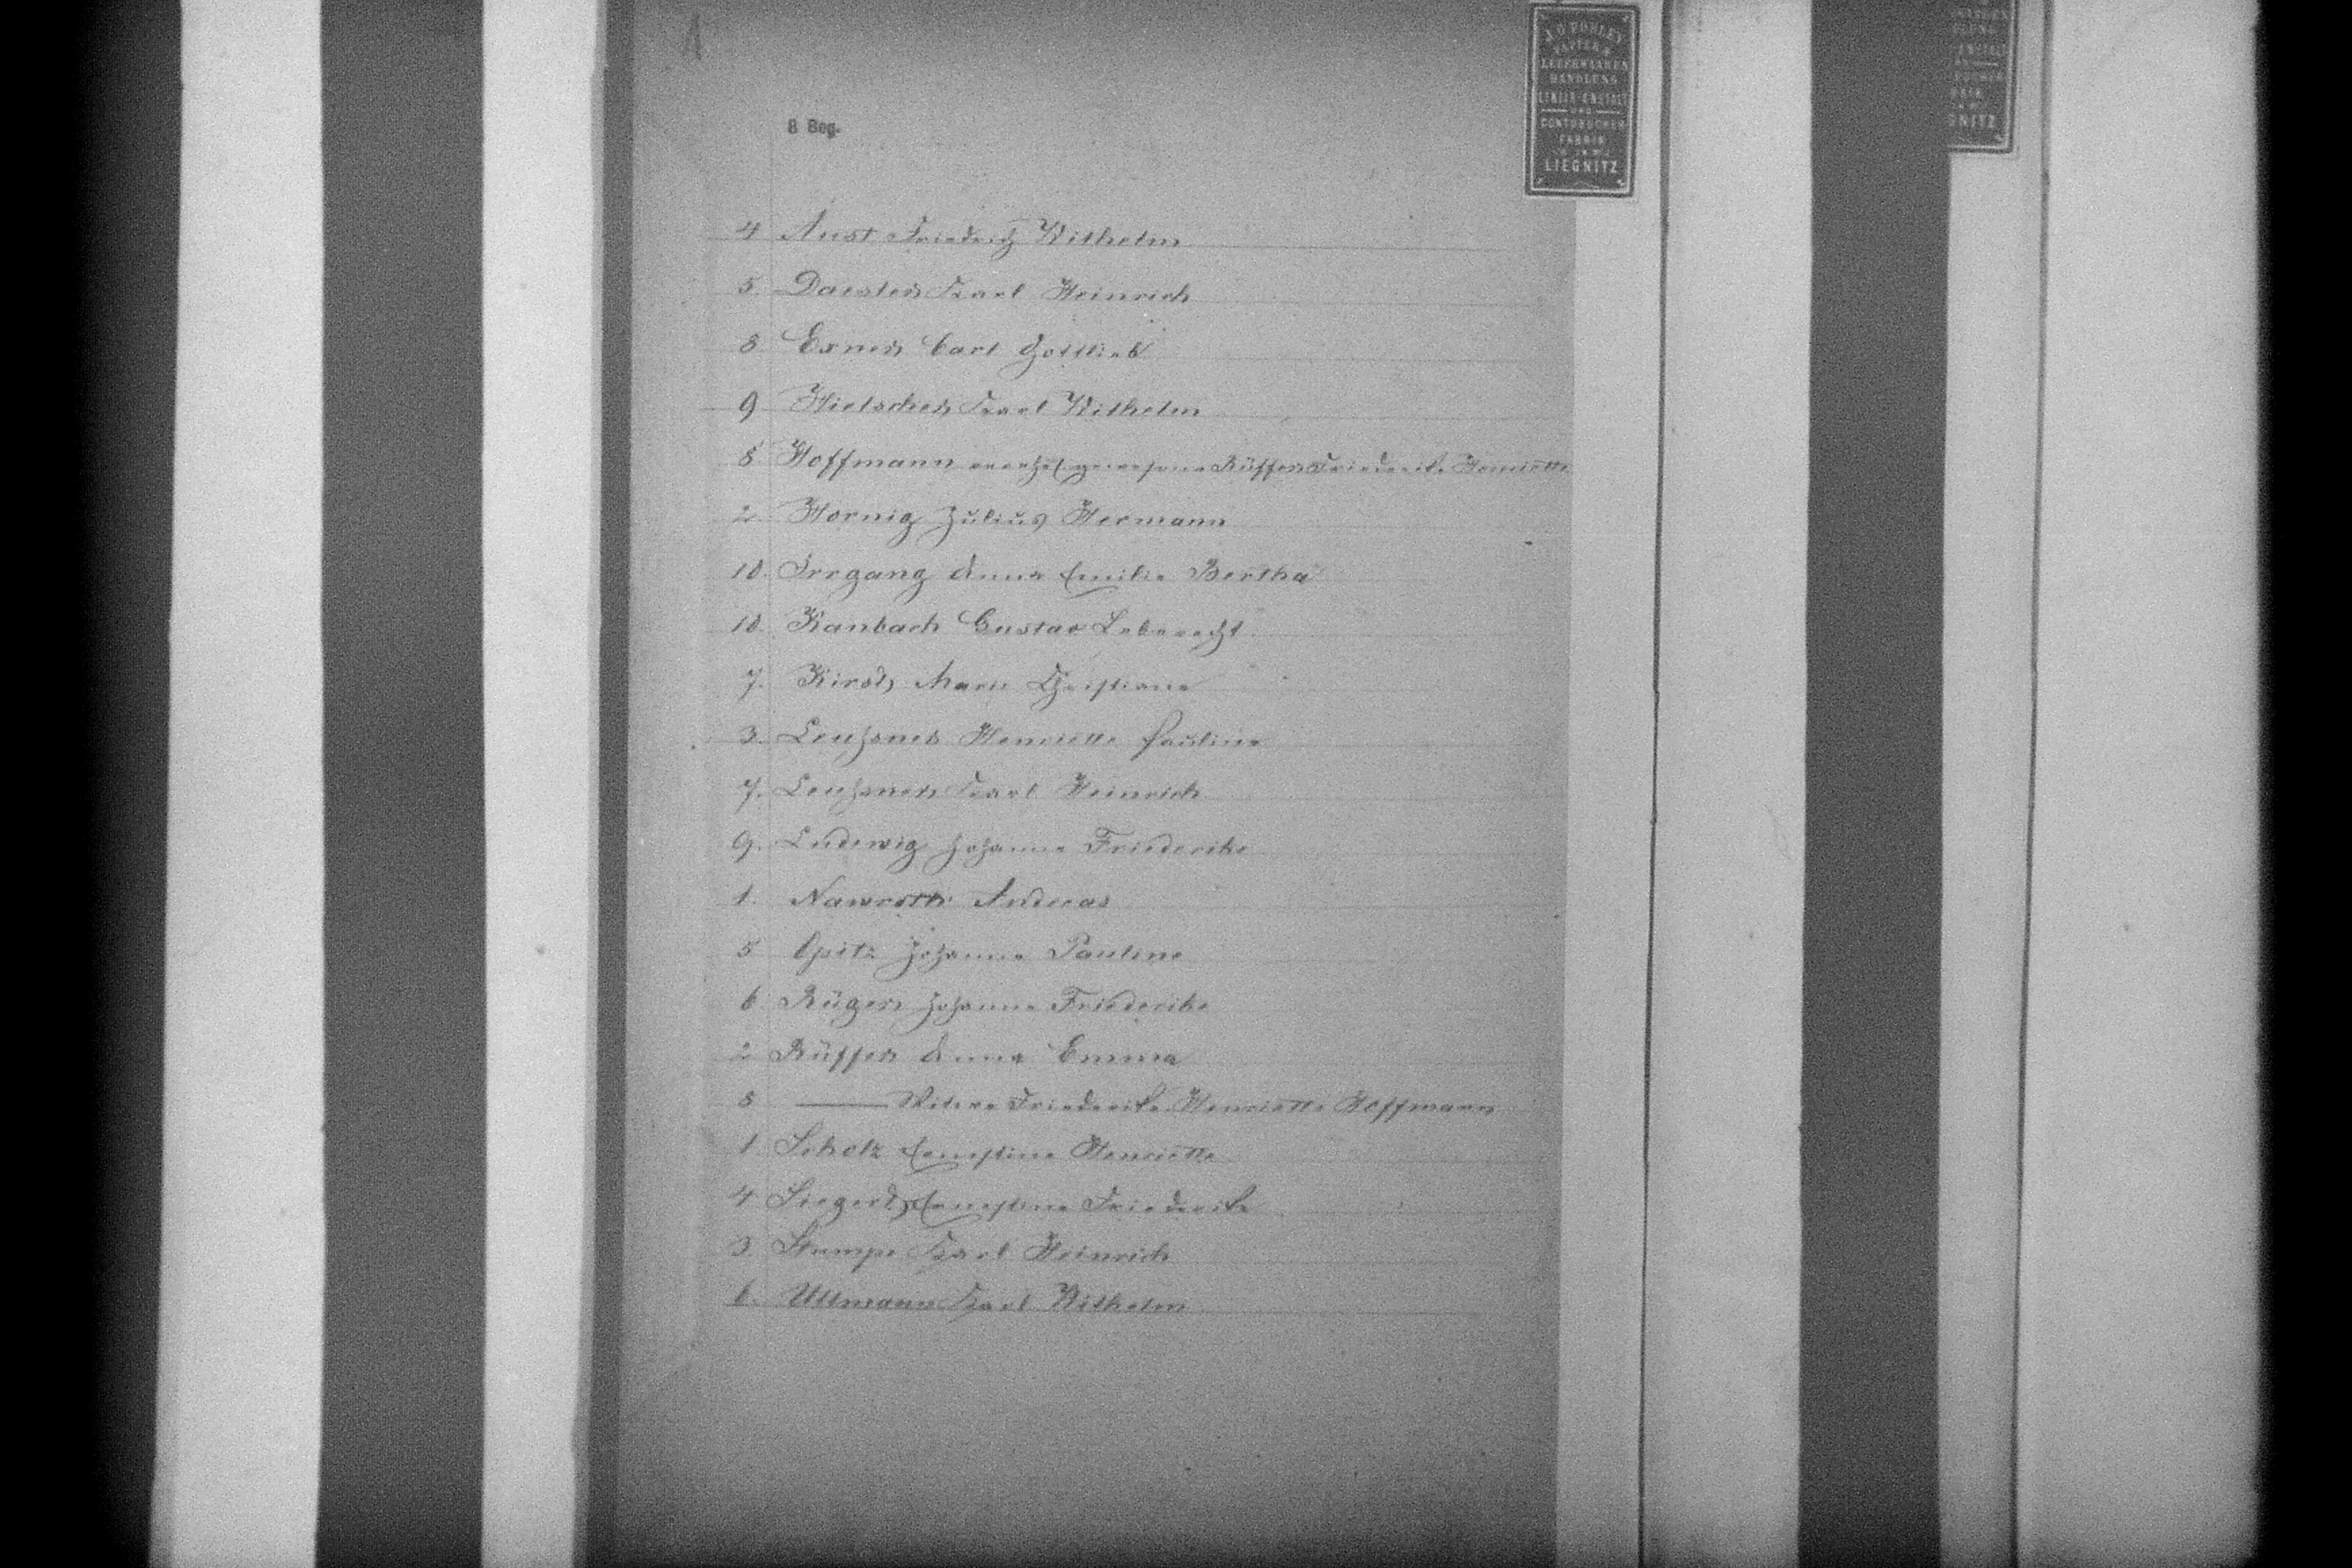 1
8 Bog.
J. G. POHLEY
PAPIER &
LEDERWAAREN
HANDLUNG
LINIIR-ANSTALT
UND
CONTOBÜCHER
FABRIK
IN
LIEGNITZ
4 Aust Friedrich Wilhelm
5. Daester Karl Heinrich
8. Exner Carl Gottlieb
9 Hielscher Karl Wilhelm
8. Hoffmann verehel. gewesene Rüffer Friederike Henriette
2. Hornig Julius Hermann
10. Irrgang Anna Emilie Bertha
10. Kanbach Gustav Leberecht
7. Kirsch Marie Christiane
3. Leuhsner Henriette Pauline
7. Leuhsner Karl Heinrich
9. Ludewig Johanne Friederike
1. Nawroth Andreas
5 Opitz Johanne Pauline
6 Rüger Johanne Friederike
2 Rüffer Anna Emma
8 ——— Witwe Friederike Henriette Hoffmann
1 Scholz Ernestine Henriette
4 Siegert Ernestine Friederike
3. Stumpe Karl Heinrich
6. Ullmann Karl Wilhelm
GNITZ